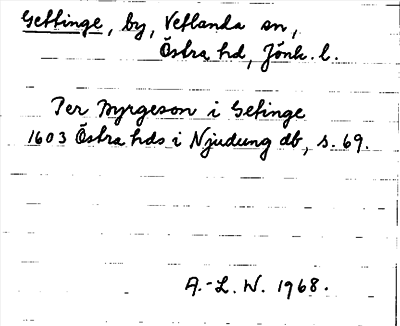 Getinge, by, Vetlanda sn,
Östra hd, Jönk. l.
Per Byrgeson i Getinge
1603 Östra hds i Njudung db, s. 69.
A.-L. W. 1968.